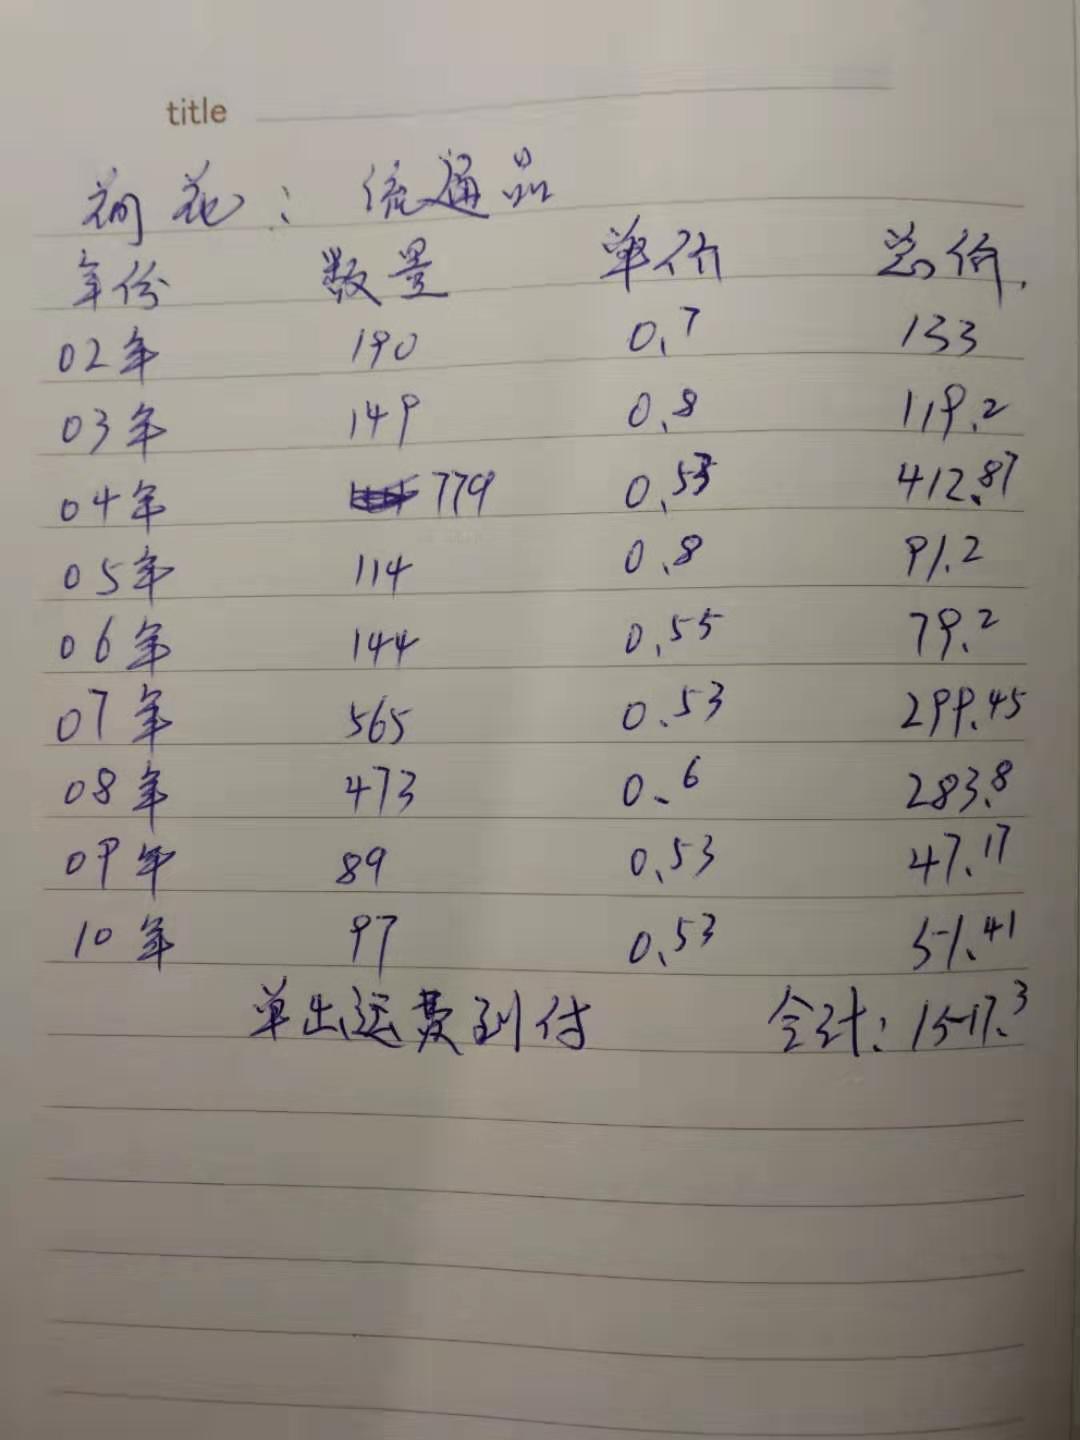 title
荷花：流通品
年份 数量 单价 总价
02年 190 0.7 133
03年 149 0.8 119.2
04年 779 0.53 412.87
05年 114 0.8 91.2
06年 144 0.55 79.2
07年 565 0.53 299.45
08年 473 0.6 283.8
09年 89 0.53 47.17
10年 97 0.53 51.41
单出运费到付 合计：1517.3